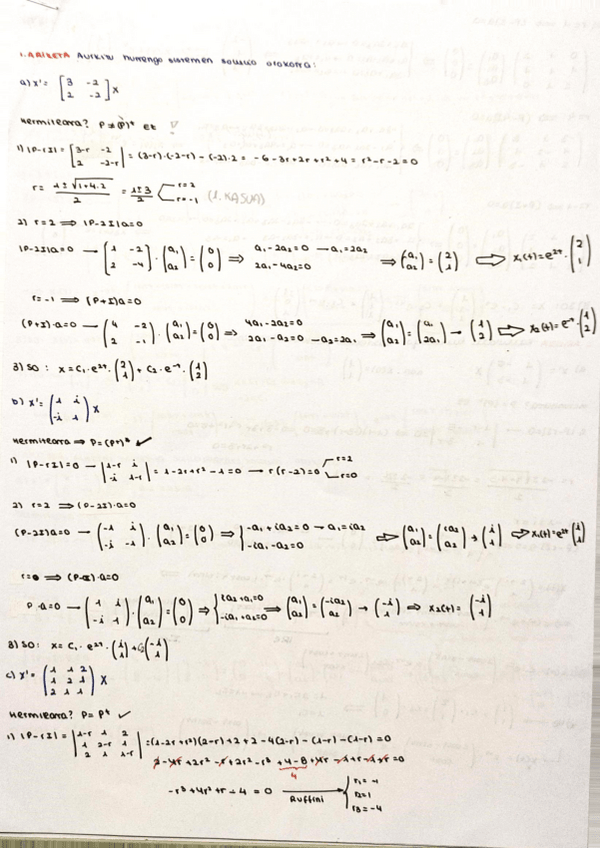 1. ARIKETA Aurkitu hurrengo sistemen soluzio orokorra:
a) x' = [3 -2; 2 -2] x
Hermitearra? P ≠ (P)* ez
1) |P-rI| = |3-r -2; 2 -2-r| = (3-r)·(-2-r) - (-2)·2 = -6-3r+2r+r²+4 = r²-r-2=0
r = (1±√(1+4·2))/2 = (1±3)/2 < r=2 r=-1 (1. KASUA)
2) r=2 ⟹ |P-2I|a=0
|P-2I|a=0 → (1 -2; 2 -4)·(a₁; a₂) = (0; 0) ⟹ a₁-2a₂=0 → a₁=2a₂ 2a₁-4a₂=0 ⟹ (a₁; a₂) = (2; 1) ⟹ x₁(t)=e^2t·(2; 1)
r=-1 ⟹ (P+I)a=0
(P+I)·a=0 → (4 -2; 2 -1)·(a₁; a₁) = (0; 0) ⟹ 4a₁-2a₂=0 2a₁-a₂=0 → a₂=2a₁ ⟹ (a₁; a₂) = (a₁; 2a₁) → (1; 2) ⟹ x₂(t)=e^-t·(1; 2)
3) SO: x = c₁·e^2t·(2; 1) + c₂·e^-t·(1; 2)
b) x' = (1 i; -i 1) x
Hermitearra ⟹ P=(P*)* ✓
1) |P-rI|=0 → |1-r i; -i 1-r| = 1-2r+r²-1=0 → r(r-2)=0 < r=2 r=0
2) r=2 ⟹ (P-2I)·a=0
(P-2I)a=0 → (-1 i; -i -1)·(a₁; a₂) = (0; 0) ⟹ { -a₁+ia₂=0 → a₁=ia₂ -ia₁-a₂=0 ⟹ (a₁; a₂) = (ia₂; a₂) → (i; 1) ⟹ x₁(t)=e^2t (i; 1)
r=0 ⟹ a=0
P·a=0 → (1 i; -i 1)·(a₁; a₂) = (0; 0) ⟹ { ia₂+a₁=0 -ia₁+a₂=0 ⟹ (a₁; a₂) = (-ia₂; a₂) → (-i; 1) ⟹ x₂(t) = (-i; 1)
3) SO: x = c₁·e^2t·(i; 1) + c₂(-i; 1)
c) x' = (1 1 2; 1 2 1; 2 1 1) x
Hermitearra? P=P* ✓
1) |P-rI| = |1-r 1 2; 1 2-r 1; 2 1 1-r| = (1-2r+r²)(2-r)+2+2-4(2-r)-(1-r)-(1-r)=0
2-4r+2r²-r+2r²-r³+4-8+4r-1+r-1+r=0
4
-r³+4r²+r-4=0 Ruffini → { r₁=-1 r₂=1 r₃=-4